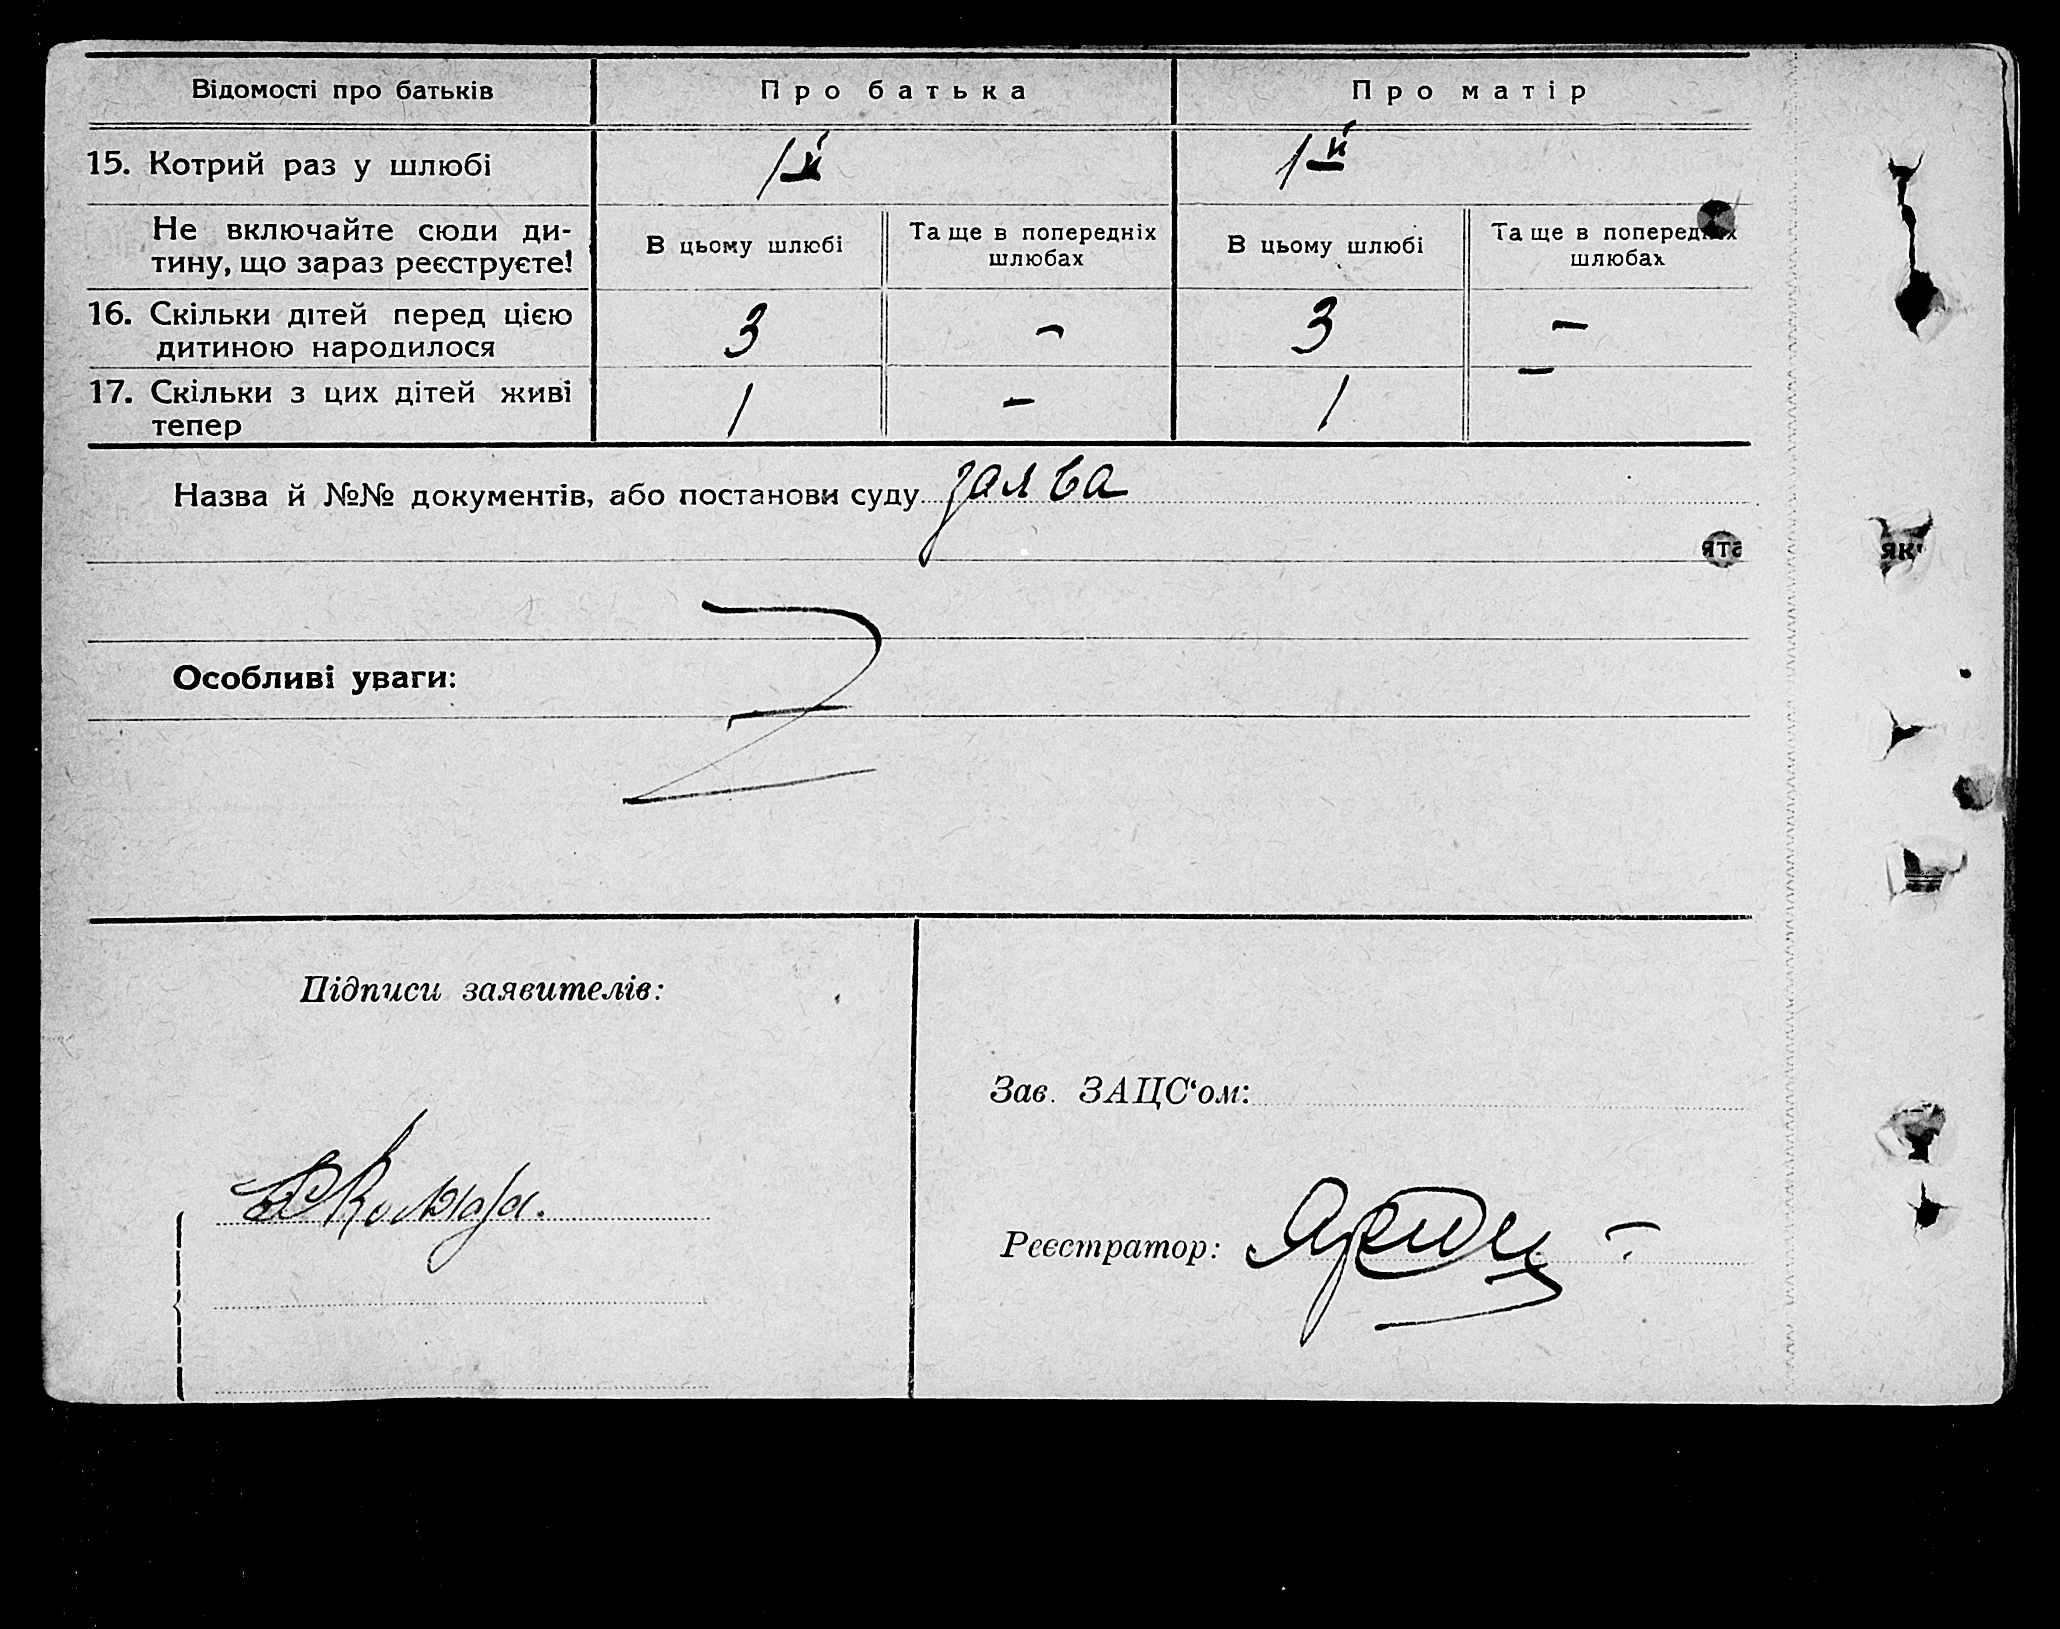 Відомості про батьків Про батька Про матір
15. Котрий раз у шлюбі 1й 1й
Не включайте сюди ди-
тину, що зараз реєструєте!
В цьому шлюбі Та ще в попередніх шлюбах В цьому шлюбі Та ще в попередніх шлюбах
16. Скільки дітей перед цією
дитиною народилося 3 – 3 –
17. Скільки з цих дітей живі
тепер 1 – 1 –
Назва й №№ документів, або постанови суду заява
Особливі уваги:
Підписи заявителів:
Зав. ЗАЦС‘ом:
Реєстратор: